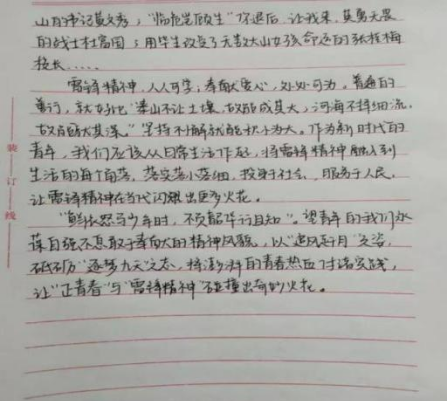 山的书记黄文秀；“临危岂顾生”“你退后，让我来”，英勇无畏
的战士杜富国；用毕生改变了无数大山女孩命运的张桂梅
校长……
雷锋精神，人人可学；奉献爱心，处处可为。普通的
善行，就好比“泰山不让土壤，故能成其大；河海不择细流，
故能就其深。”坚持不懈就能积小为大。作为新时代的
青年，我们应该从日常生活作起，将雷锋精神融入到
生活的每个角落，落实落小落细，投身社会，服务于人民，
让雷锋精神在当代闪烁出更多火花。
“鲜衣怒马少年时，不负韶华行且知”。望青年的我们永
葆自强不息敢于奉献的精神风貌，以“追风赶月”之姿，
砥砺“逐梦九天”之态，将澎湃的青春热血付诸实践，
让“正青春”与“雷锋精神”碰撞出奇妙火花。
装
订
线